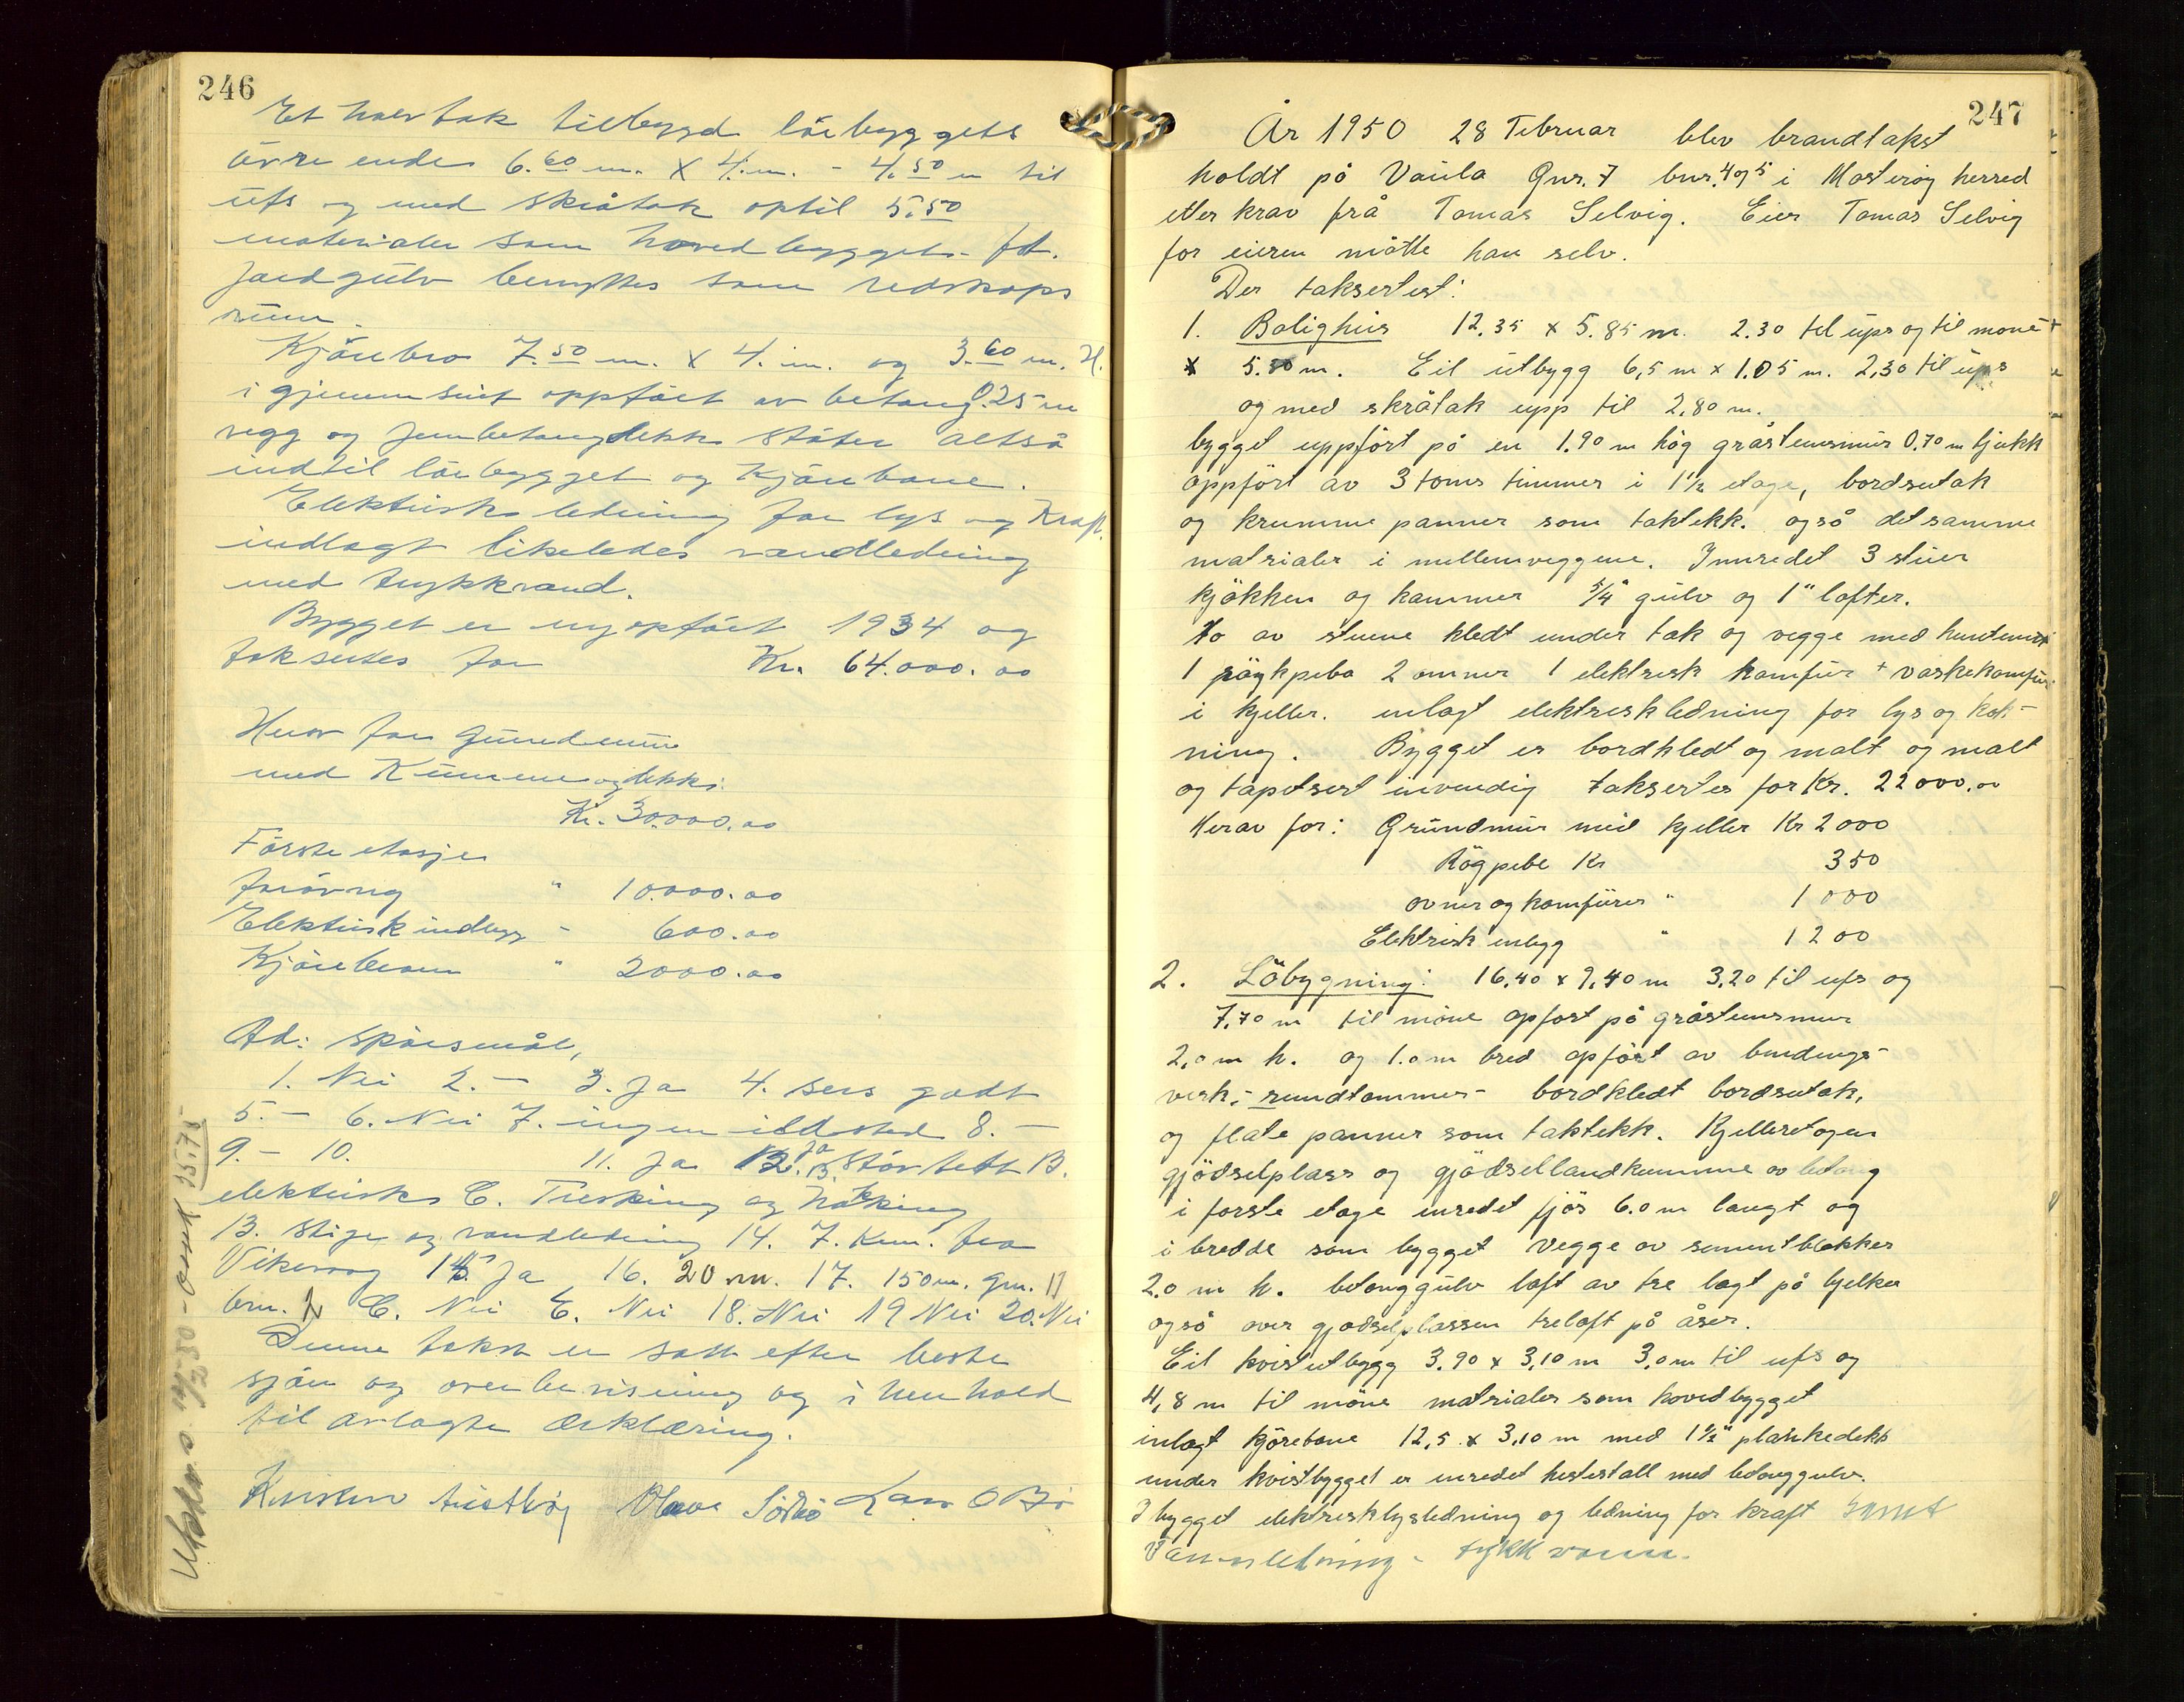 246
Et halvtak tilbygd löebyggets
övre ende 6.60 m. X 4. m. - 4.50 m til
ufs og med skråtak optil 5.50
materialer som hovedbygget. fot.
Jordgulv benyttes som redskaps
rum.
Kjörebro 7.50 m. X 4. m. og 3.60 m. H.
i gjennemsnit oppfört av betong 0.25 m
vegg og jernbetongdekke stöter altså
indtil löebygget og Kjörebane.
Elektrisk ledning for lys og Kraft.
indlagt likeledes vandledning
med trykkvand.
Bygget er nyopfört 1934 og
takseres for Kr. 64.000.00
Herav for Grundmur
med Kumme og dekke
Kr. 30.000.00
Förste etasje
forövrig " 10.000.00
Elektrisk indlegg - 600.00
Kjörebroen " 2000.00
Ad: spörsmål,
1. Nei 2. - 3. Ja 4. sers godt
5. - 6. Nei 7. ingen ildsted 8. -
9. - 10. 11. Ja 12. Ja B. Stövtett B.
elektrisk C. Tresking og hakking
13. Stige og vandledning 14. 7. Km. fra
Vikevåg 15. Ja 16. 20 m. 17. 150 m. Gnr. 17
bnr. 2 C. Nei E. Nei 18. Nei 19 Nei 20. Nei
Denne takst er satt efter beste
sjön og overbevisning og i henhold
til avlagte Erklæring.
Kristen Austbög Olave Södbö Lars O Bö
Utskr. s. 14/2 50 - 35,75
247
År 1950 28 Februar blev brandtakst
holdt på Vaula Gnr. 7 bnr. 4 og 5 i Mosteröy herred
etter krav frå Tomas Selvig. Eier Tomas Selvig
for eieren mötte han selv.
Der taksertest:
1. Bolighus 12.35 x 5.85 m. 2.30 til ups og til möne
x 5.50 m. Eit utbygg 6,5 m x 1.05 m. 2,30 til ups
og med skråtak upp til 2,80 m.
bygget uppfört på en 1.90 m hög gråstensmur 0.70 m tjukk
oppfört av 3 toms timmer i 1 1/2 etage, bordsutak
og krumme panner som taktekk. også det samme
matrialer i mellemveggene. Innredet 3 stuer
kjökken og kammer 5/4" gulv og 1" lofter.
To av stuene kledt under tak og vegge med huntonit
1 rögkpebe 2 ovnner 1 elektrisk komfur + vaskekomfur
i kjeller. enlagt elektriskledning for lys og kok-
ning. Bygget er bordkledt og malt og malt
og tapetsert invendig takseres for Kr. 22000.00
Herav for: Grundmur med kjeller Kr 2000
Rögpebe Kr 350
ovner og komfürer " 1000
Elektrisk enlegg " 1200
2. Löbygning: 16.40 x 9,40 m 3.20 til ufs og
7,70 m til möne opfört på gråstensmur
2,0 m h. og 1.0 m bred opfört av bendings-
verk, - rundtømmer - bordkledt bordsutak,
og flate panner som taktekk. Kjelleretagen
gjödselplass og gjödsellandkumme av betong
i förste etage inredet fjös 6.0 m langt og
i bredde som bygget Vegge av sementblokker
2.0 m h. betonggulv loft av tre lagt på bjelker
også over gjödselplassen treloft på åser.
Eit kvistutbygg 3.90 x 3,10 m 3.0 m til ufs og
4,8 m til möne matrialer som hovedbygget
inlagt kjörebane 12,5 x 3,10 m med 1 1/2" plankedekk
under kvistbygget er inredet hestestall med betonggulv.
I bygget elektrisklysledning og ledning for kraft samt
Vannledning - trykkvann.